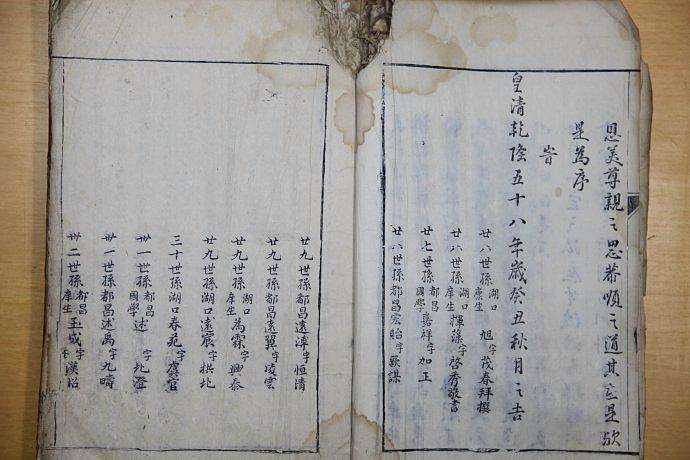 恩美尊親之思恭順之道其亶是欤
是為序
峕
皇清乾隆五十八年歲癸丑秋月之吉
廿八世孫湖口廪生旭字茂春拜撰
廿八世孫湖口庠生字啓秀敬書
廿七世孫都昌國學嘉祥字如玉
廿八世孫都昌宏貽字謀
廿九世孫都昌遠淳字恒清
廿九世孫都昌遠翼字凌雲
廿九世孫湖口遠宸字拱北
廿九世孫湖口庠生為霖字興泰
三十世孫湖口春苑字
卅一世孫都昌國學述字九澄
卅一世孫都昌述禹字九疇
卅二世孫都昌庠生玉成字漢昭